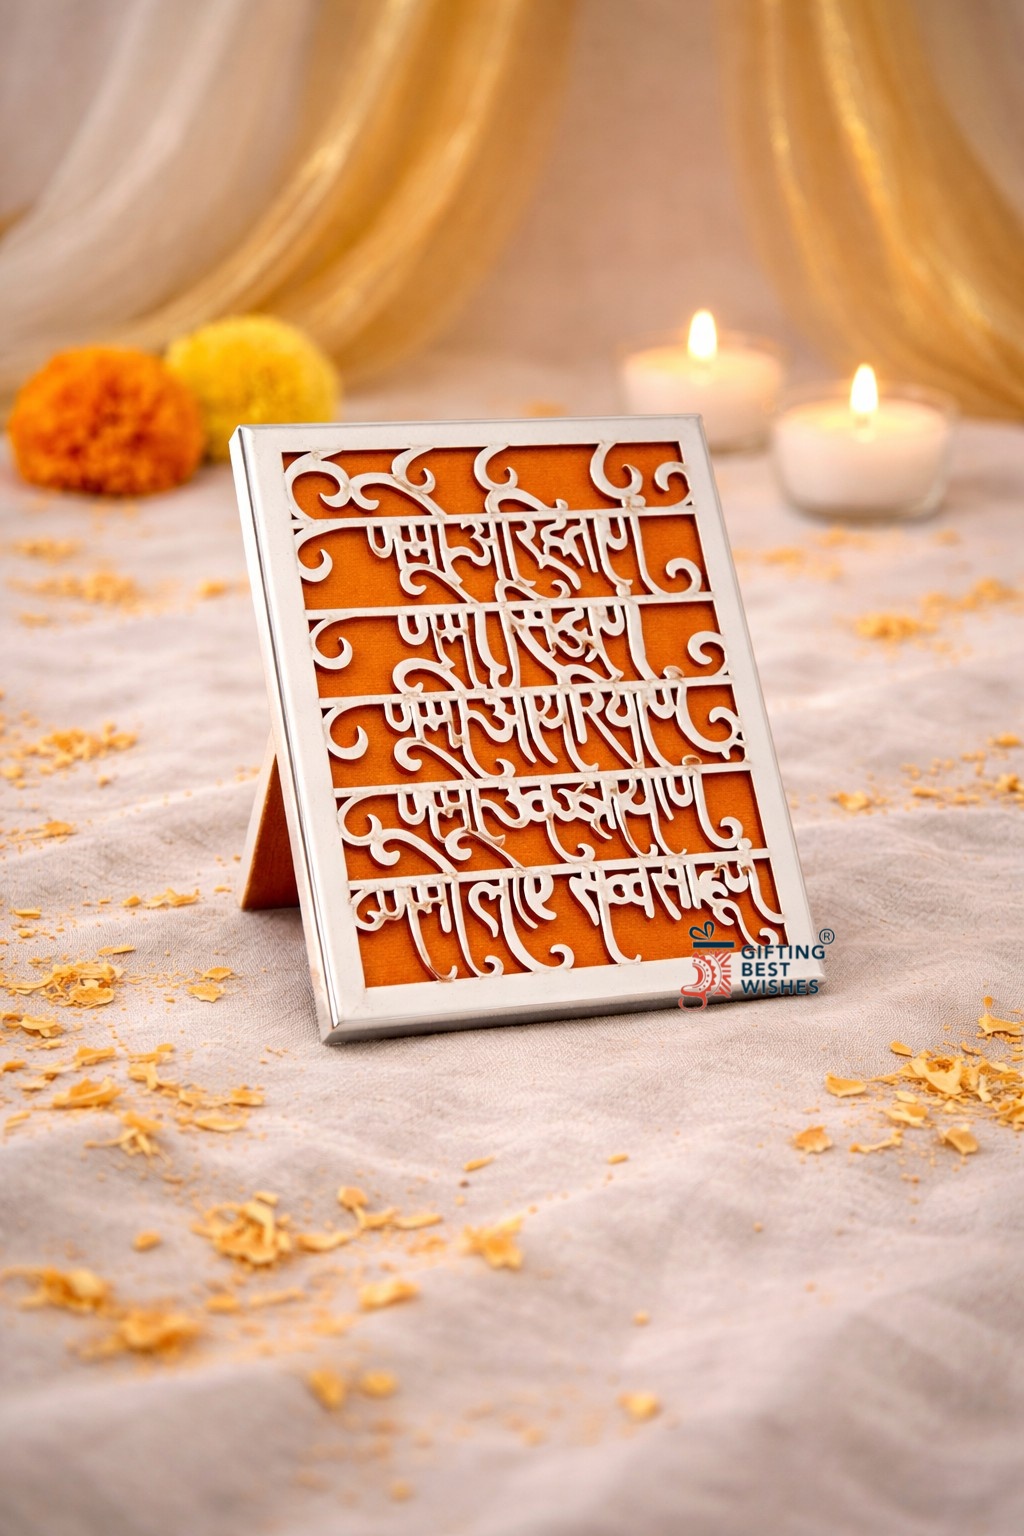 णमो अरिहंताणं
णमो सिद्धाणं
णमो आयरियाणं
णमो उवज्झायाणं
णमो लोए सव्वसाहूणं
GIFTING ®
BEST
WISHES